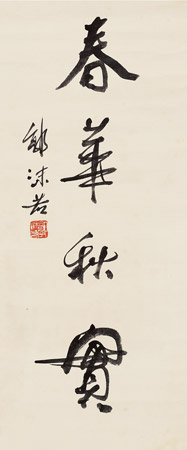 春華秋實
郭沫若